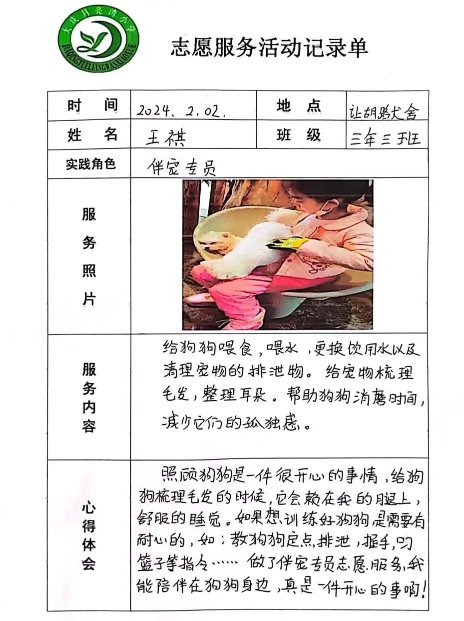 志愿服务活动记录单
时 间 2024.2.02. 地 点 让胡路犬舍
姓 名 王祺 班 级 三年三班
实践角色 伴宠专员
服务照片
服务内容
给狗狗喂食,喂水,更换饮用水以及
清理宠物的排泄物。给宠物梳理
毛发,整理耳朵。帮助狗狗消磨时间,
减少它们的孤独感。
心得体会
照顾狗狗是一件很开心的事情,给狗
狗梳理毛发的时候,它会赖在我的腿上,
舒服的睡觉。如果想训练好狗狗是需要有
耐心的,如:教狗狗定点排泄,握手,叼
篮子等指令……做了伴宠专员志愿服务,我
能陪伴在狗狗身边,真是一件开心的事啊!